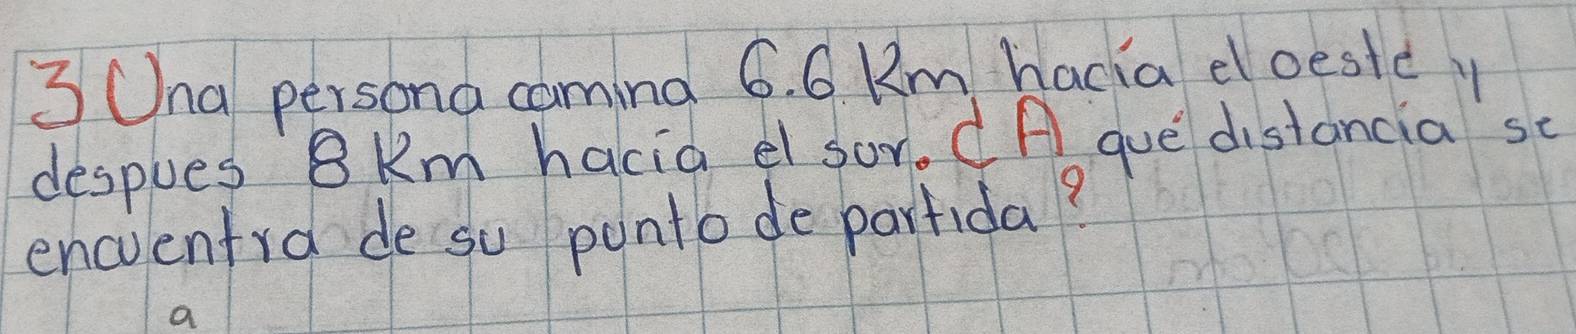 3 Una persona camina 6.6 Km hacía el oeste y
despues 8 Km hacia el sur. ¿A qué distancia se
encuentra de su punto de partida?
a